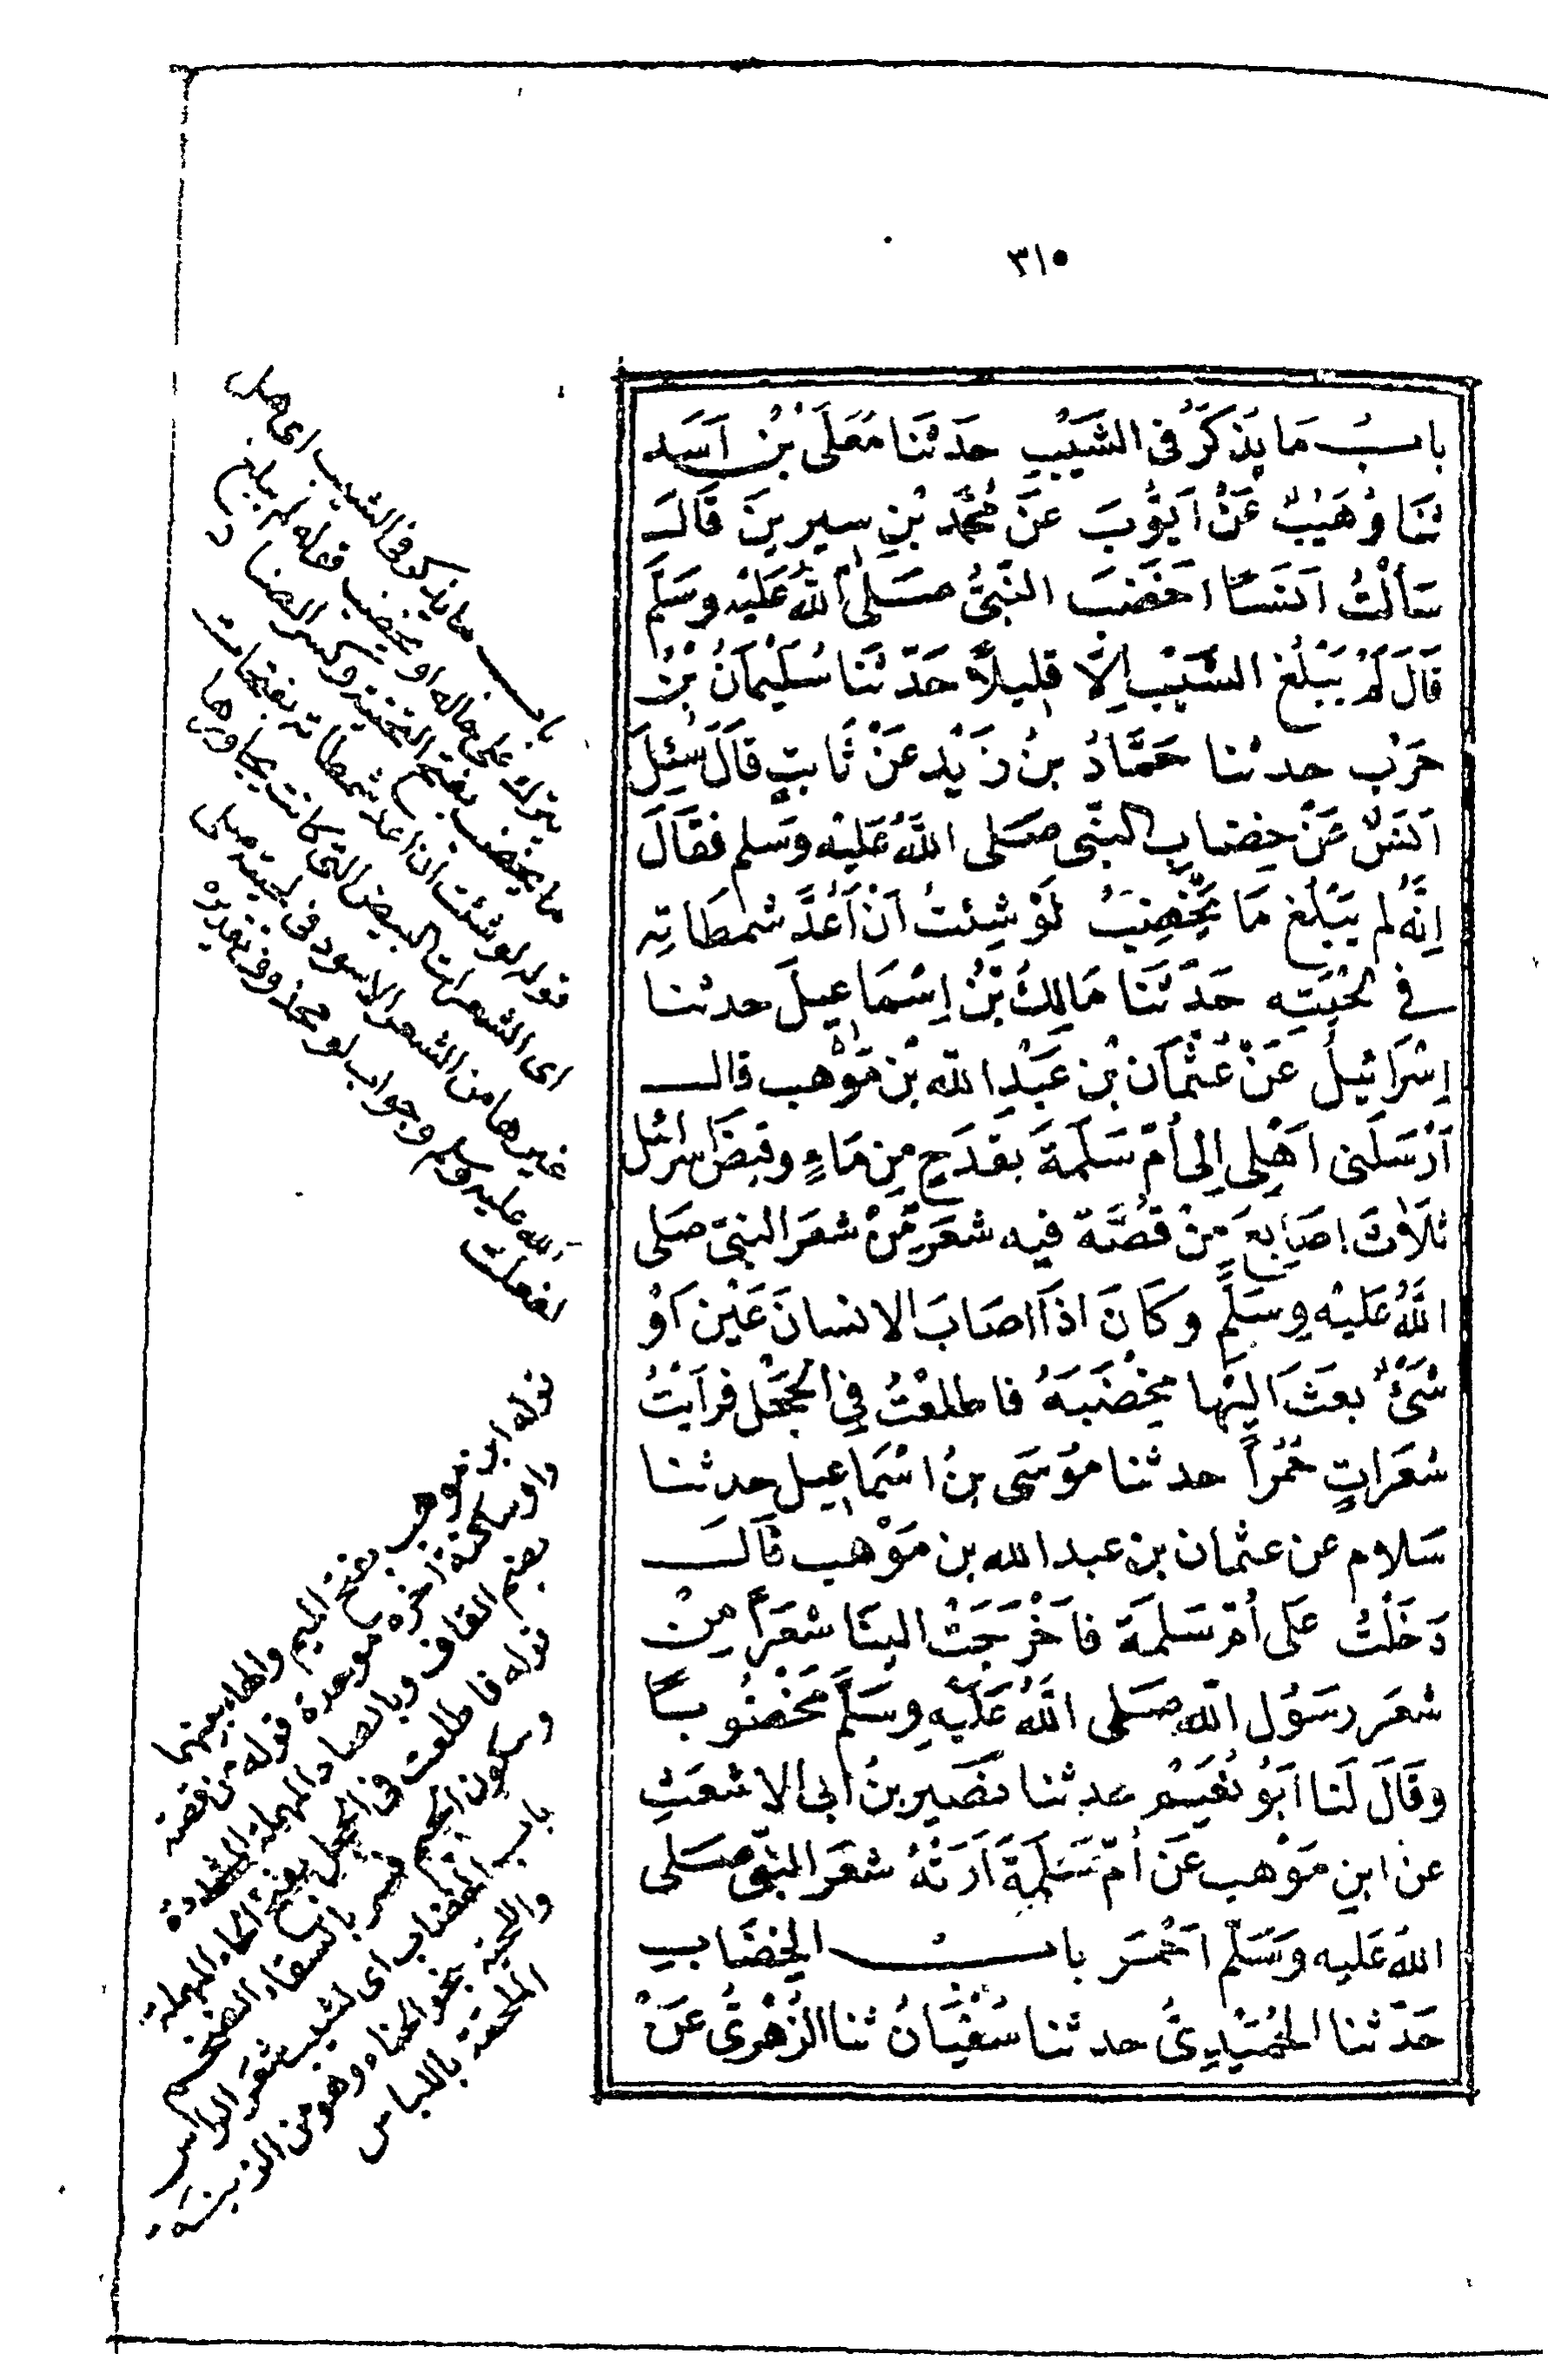 ٣١٠
باب مَا يُذكَرُ في الشَيْبِ حَدثنَا مُعَلَى بْنُ اَسَد
ثنَا وُهَيْبٌ عَنْ اَيّوُبَ عَنْ مُحمَّد بْنِ سيرينَ قَالَ
سَألتُ اَنَسًا اخَضَبَ النَّبىُّ صَلى اللهُ عَلَيْه وسَلَّم
قَالَ لَمْ يَبْلُغ الشَيْب اِلَّا قليلاً حَدّثنَا سُلَيْمَانُ بْنُ
حَرْب حدثنا حَمَّادُ بنُ زَيْد عَنْ ثَابتٍ قَالَ سُئِلَ
اَنَسٌ عَنْ خِضابِ النبّى صَلى اللَّهُ عَليْه وَسَلم فقَالَ
اِنَّهُ لم يَبْلُغ مَا يَخْضِبُ لَوْ شِئتُ اَنْ اَعُدَّ شمَطَاتِه
في لحْيَتِه حَدّثَنَا مَالِكُ بْنُ اِسْمَاعيلَ حدثنا
اِسْرَائيلُ عَنْ عُثْمَان بْن عَبْدِ الله بْن مَوْهب قال
اَرْسَلَنى اَهْلى اِلى اُمّ سَلَمَةَ بقَدَحٍ مِن مَاءٍ وقبَضَ اسرائل
ثلَاثَ اصَابِعَ مِنْ قُصَّة فيه شعَرٌ مّنْ شعَر النبىّ صَلى
اللَّهُ عَليْه وسَلم وكَانَ اذَا اصَابَ الانسانَ عَيْن اَوْ
شَىْءٌ بعَثَ اليْهَا مِخْضَبَهُ فاطلعْتُ في الجَحْل فرَاَيْتُ
شعَرَاتٍ حُمْراً حدثنا مُوسَى بنُ اسْمَاعيل حدثنا
سَلام عن عثمان بن عبدالله بن مَوْهب قَالَ
دَخَلْتُ عَلى اُمّ سَلمَة فاَخْرَجَتْ الينَا شعَرَاً منْ
شعَر رسَوُل الله صَلى اللَّهُ عَلَيْهِ وسَلَّم مَخْضُوبًا
وقَالَ لَنا ابَوُ نُعَيْم حدثنا نصَيرُ بنُ ابى الاشعَثِ
عن ابنِ مَوْهب عَن اُمّ سَلَمَةَ اَرَتْهُ شعَر النبّى صَلى
اللهُ عَليه وَسَلّم اَحْمَر باب الخِضَابِ
حَدّثنا الحُمَيْدِىُّ حدثنا سُفْيَانُ ثنا الزُهْرىُّ عَنْ
باب ما يذكر فى الشيب اى هل
يترك على حاله او يخضب قوله لم يبلغ
ما يخضب بفتح التحتية وكسر الضاد
قوله لو شئت ان اعد شمطاته بفتحات
اى الشعرات البيض التى كانت يجاورها
غيرها من الشعر الاسود فى لحيته صلى
الله عليه وسلم وجواب لو محذوف تقديره
لفعلت
قوله ابن موهب بفتح الميم والهاء بينهما
واو ساكنة آخره موحدة قوله من قصة
بضم القاف وبالصاد المهملة المشددة
قوله فاطلعت فى الجحل بفتح الحاء المهملة
وسكون الجيم فسر بالسقاء الضخم
باب الخضاب اى لشيب شعر الراس
واللحية بنحو الحناء وهو من الزينة
الملحقة باللباس